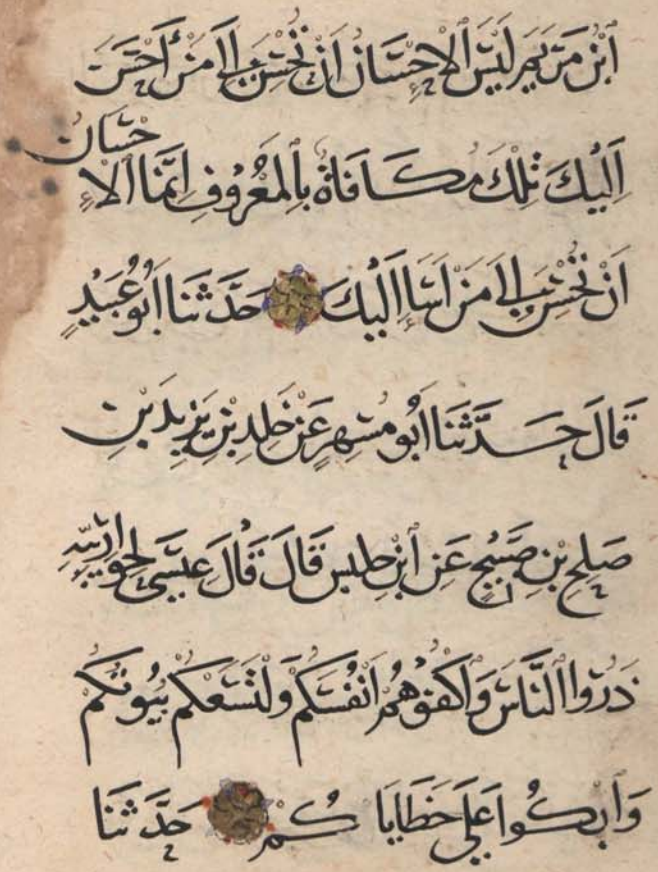 ٱبْنُ مَرْيَمَ لَيْسَ ٱلْإِحْسَانُ أَنْ تُحْسِنَ إِلَى مَنْ أَحْسَنَ
إِلَيْكَ تِلْكَ مُكَافَاةٌ بِالْمَعْرُوفِ إِنَّمَا ٱلْإِحْسَانُ
أَنْ تُحْسِنَ إِلَى مَنْ أَسَاءَ إِلَيْكَ حَدَّثَنَا أَبُو عُبَيْدٍ
قَالَ حَدَّثَنَا أَبُو مُسْهِرٍ عَنْ خَلِدِ بْنِ يَزِيدَ بْنِ
صَلِحِ بْنِ صَبِيحٍ عَنِ ٱبْنِ حلبس قَالَ قَالَ عِيسَى لِلْحَوَارِيِّينَ
ذَرُوا النَّاسَ وَٱكْفُوهُمْ أَنْفُسَكُمْ وَلْتَسَعْكُمْ بُيُوتُكُمْ
وَٱبْكُوا عَلَى خَطَايَاكُمْ حَدَّثَنَا